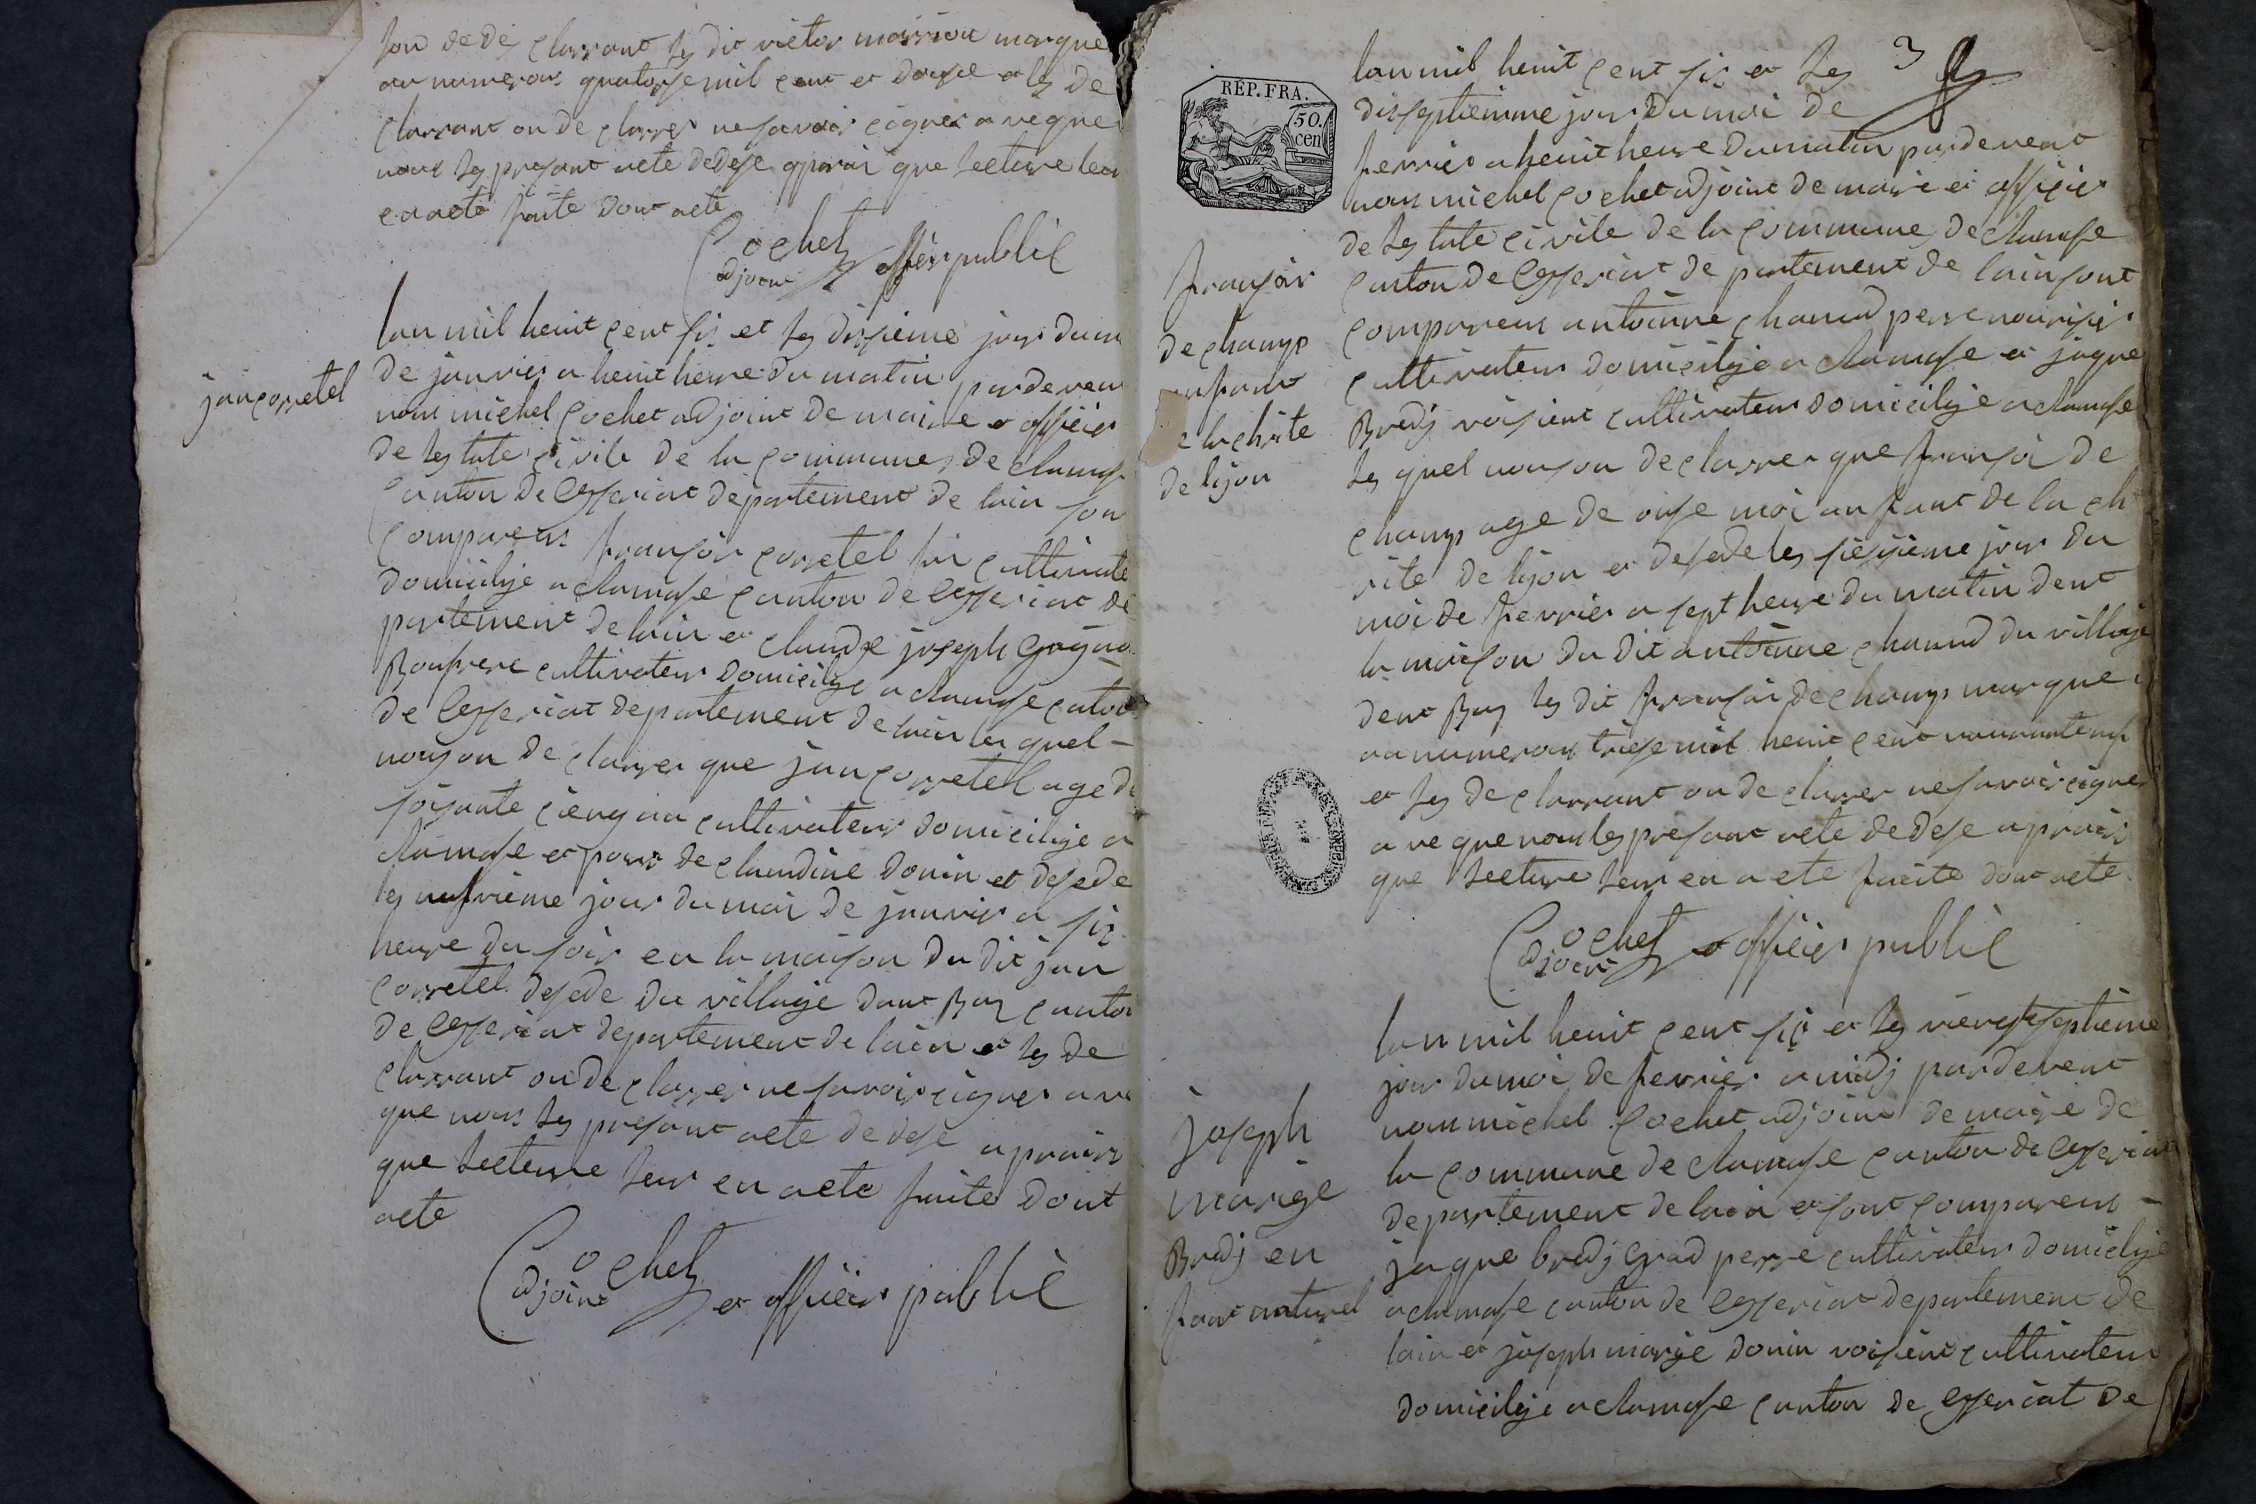 son de des clarrant les dit victor marriou marque
au numerous quatorse mil cent et douse et les de
clarrant on de clarrer ne savoir cigner a ve que
nous les presant acte de dese aprai que lecture leur
en acte faite dont acte
Cochet
adjoint et officier public
jan corretel
lan mil heuit cent six et les disieme jour du m
de janvier a heuit heure du matin par devent
nous michel Cochet adjoint de maire et officier
de les tate civile de la commune de clemase
canton de Ceyseriat departement de lain son
comparens fransois corretel fis cultivate
domicilije a clamase canton de Ceyseriat de
partement de lain et claudge joseph gogna
Boufrere cultivateur domicilije a clamase canton
de Ceyseriat departement de lain les quel
nouson de clarrer que jan corretel age de
soisante cienq an cultivateur domicilije a
clamase et pour de claudine Donin et desede
les nufvieme jour du moi de janvier a six
heure du soir en la maison du dit jan
corretel desede du village dant Bas canton
de Ceyseriat departement de lain et les de
clarrant on de clarrer ne savoir cigner a ve
que nous les presant acte de dese aprair
que lecteure leur en acte faite dont
acte
Cochet
adjoint et officier public
3
REP. FRA.
50. cen
lan mil heuit cent six et les
disseptiemme jour du moi de
ferrier a heuit heure du matin par devent
nous michel Cochet adjoint de maire et officier
de les tate civile de la commune de clamase
canton de Ceyseriat de partement de lain sont
comparens antoinne chanud perre nourisier
cultivateur domicilije a clamase et jaque
Bredj voisient cultivateur domicilije a clamase
les quel nouson de clarrer que fransoi de
champ age de onse moi anfant de la ch
rite de lijon et desede les siesieme jour du
moi de fevrier a sept heure du matin dent
la maison du dit antoinne chanud du village
dent Bas les dit fransoi de champ marque
au numerous trese mil heuit cent nonante nuf
et les de clarrant on de clarrer ne savoir cigner
a ve que nous les presant acte de dese a prair
que lecture leur en acte faite dont acte
Cochet
adjoint et officier public
fransoir
de champ
anfant
e la chrite
de lijon
lan mil heuit cent six et les viengtseptieme
jour du moi de fevrier a midj par devent
nous michel Cochet adjoint de maire de
la commune de clamase canton de Ceyseriat
departement de lain et sont comparens
jaque bredj grad perre cultivateur domicilije
a clamase canton de Ceyseriat departement de
lain et joseph marije donin voisient cultivateur
domicilije a clamase canton de Ceyseriat de
joseph
marije
Bredj en
fant naturel